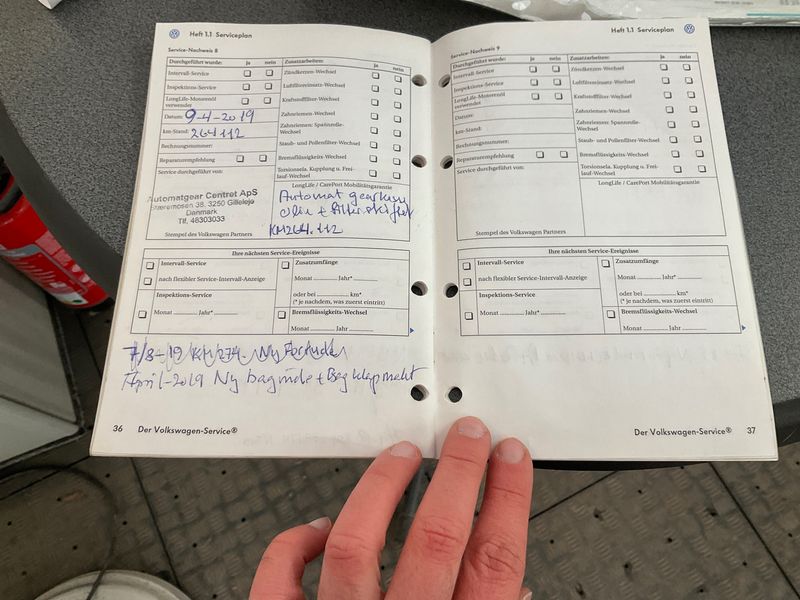 Heft 1.1 Serviceplan
Service-Nachweis 8
Durchgeführt wurde: ja nein
Intervall-Service
Inspektions-Service
LongLife-Motorenöl verwendet
Datum: 9-4-2019
km-Stand: 264112
Rechnungsnummer:
Reparaturempfehlung
Service durchgeführt von:
Automatgear Centret ApS
38, 3250 Gilleleje
Danmark
Tlf. 48303033
Stempel des Volkswagen Partners
Zusatzarbeiten: ja nein
Zündkerzen-Wechsel
Luftfiltereinsatz-Wechsel
Kraftstofffilter-Wechsel
Zahnriemen-Wechsel
Zahnriemen: Spannrolle-
Wechsel
Staub- und Pollenfilter-Wechsel
Bremsflüssigkeits-Wechsel
Torsionsela. Kupplung u. Frei-
lauf-Wechsel
LongLife / CarePort Mobilitätsgarantie
Automat gearkasse
olie + filter skiftet
KM264.112
Ihre nächsten Service-Ereignisse
Intervall-Service
nach flexibler Service-Intervall-Anzeige
Inspektions-Service
Monat Jahr*
Zusatzumfänge
Monat Jahr*
oder bei km*
(* je nachdem, was zuerst eintritt)
Bremsflüssigkeits-Wechsel
Monat Jahr
7/8-19 KM/274. Ny
April-2019 Ny bagrude + Bagklap
36 Der Volkswagen-Service®
Heft 1.1 Serviceplan
Service-Nachweis 9
Durchgeführt wurde: ja nein
Intervall-Service
Inspektions-Service
LongLife-Motorenöl
verwendet
Datum:
km-Stand:
Rechnungsnummer:
Reparaturempfehlung
Service durchgeführt von:
Stempel des Volkswagen Partners
Zusatzarbeiten: ja nein
Zündkerzen-Wechsel
Luftfiltereinsatz-Wechsel
Kraftstofffilter-Wechsel
Zahnriemen-Wechsel
Zahnriemen: Spannrolle-
Wechsel
Staub- und Pollenfilter-Wechsel
Bremsflüssigkeits-Wechsel
Torsionsela. Kupplung u. Frei-
lauf-Wechsel
LongLife / CarePort Mobilitätsgarantie
Ihre nächsten Service-Ereignisse
Intervall-Service
nach flexibler Service-Intervall-Anzeige
Inspektions-Service
Monat Jahr*
Zusatzumfänge
Monat Jahr*
oder bei km*
(* je nachdem, was zuerst eintritt)
Bremsflüssigkeits-Wechsel
Monat Jahr
Der Volkswagen-Service® 37